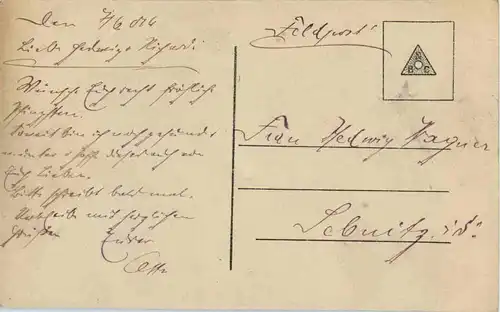 Den 7/6 1916
Liebe Hedwig & Richard!
Wünsche Euch recht fröhliche
Pfingsten.
Soweit bin ich noch gesund &
munter & hoffe dasselbe auch von
Euch Lieben.
Bitte schreibt bald mal.
Verbleibe mit herzlichen
Grüßen Euer
Otto
Feldpost
N
B C
Frau Hedwig Wagner
Sebnitz i/S.